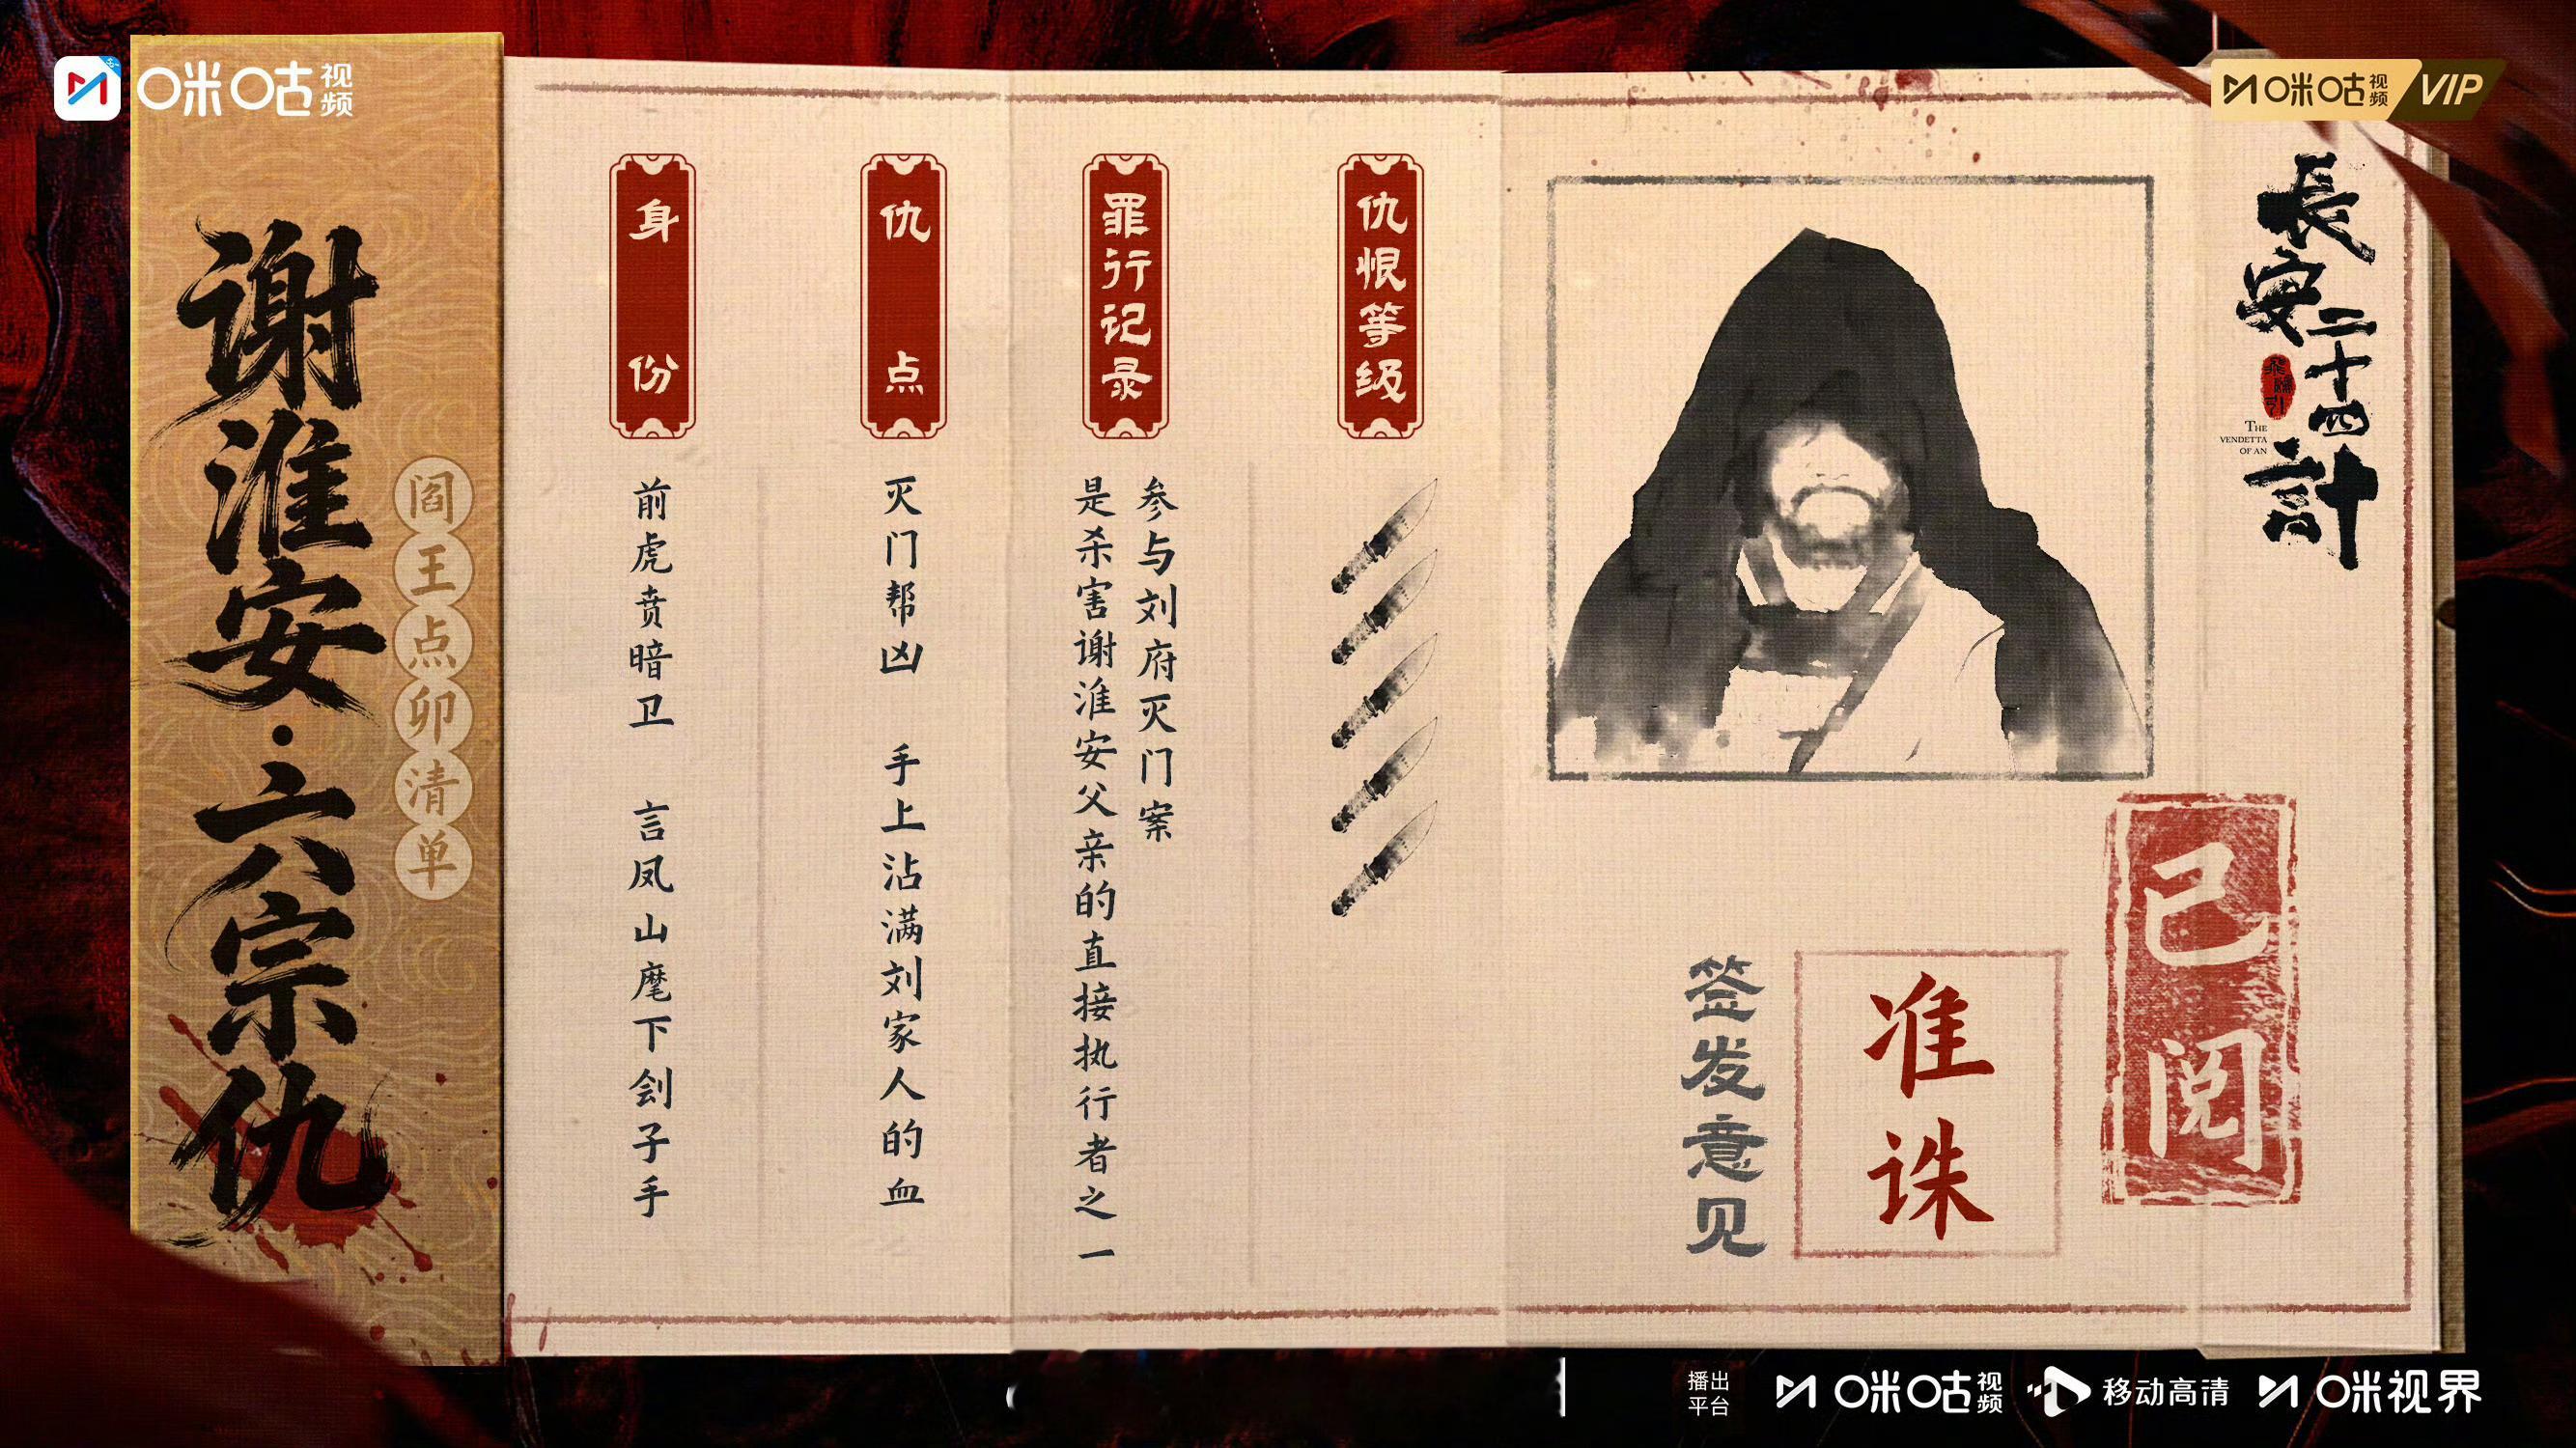 咪咕视频
咪咕视频 VIP
谢淮安·六宗仇
阎王点卯清单
身份
前虎贲暗卫 言凤山麾下刽子手
仇点
灭门帮凶 手上沾满刘家人的血
罪行记录
参与刘府灭门案
是杀害谢淮安父亲的直接执行者之一
仇恨等级
長安二十四計
THE
VENDETTA
OF AN
签发意见
准诛
已阅
播出平台
咪咕视频
移动高清
咪视界